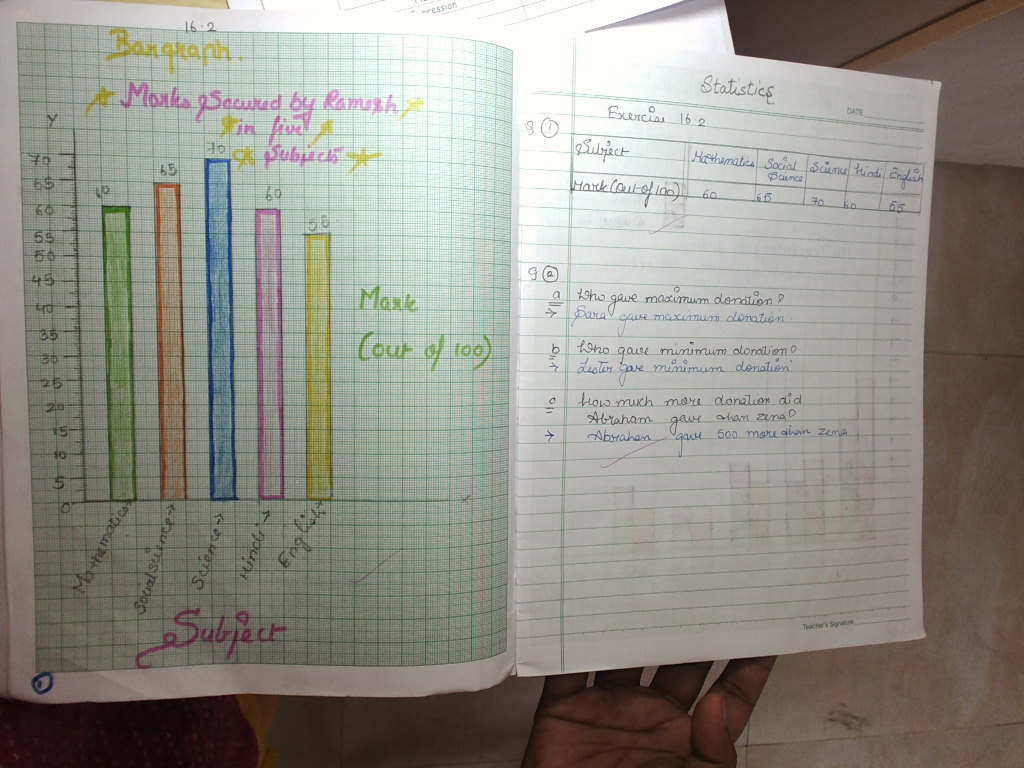 ression
16.2
Bargraph.
Marks Secured by Ramesh
in five
Subjects
Y
70
65
60
55
50
45
40
35
30
25
20
15
10
5
0
60
65
70
60
55
Mark
(out of 100)
X
Mathematics
Social Science →
Science →
Hindi →
English →
Subject
Statistics
DATE
Exercise 16.2
Q 1
Subject Mathematics Social Science Science Hindi English
Mark (out of 100) 60 65 70 60 55
Q 2
a Who gave maximum donation?
→ Sara gave maximum donation.
b Who gave minimum donation?
→ Lester gave minimum donation
c how much more donation did
Abraham gave than zena?
→ Abraham gave 500 more than zena
Teacher's Signature